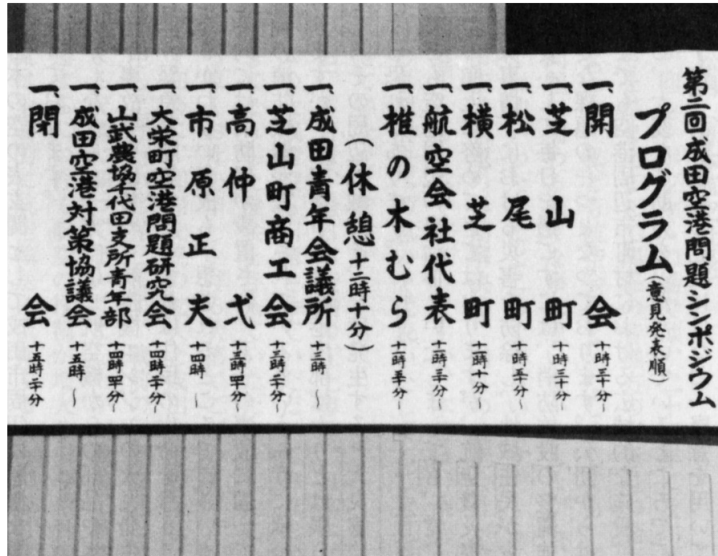 第二回成田空港問題シンポジウム
プログラム(意見発表順)
一、開会 十時三十分〜
一、芝山町 十時三十分〜
一、松尾町 十時五十分〜
一、横芝町 十一時十分〜
一、航空会社代表 十一時三十分〜
一、椎の木むら 十一時五十分〜
(休憩 十二時十分)
一、成田青年会議所 十三時〜
一、芝山町商工会 十三時二十分〜
一、高仲弌 十三時四十分〜
一、市原正夫 十四時〜
一、大栄町空港問題研究会 十四時二十分〜
一、山武農協千代田支所青年部 十四時四十分〜
一、成田空港対策協議会 十五時〜
一、閉会 十五時二十分〜